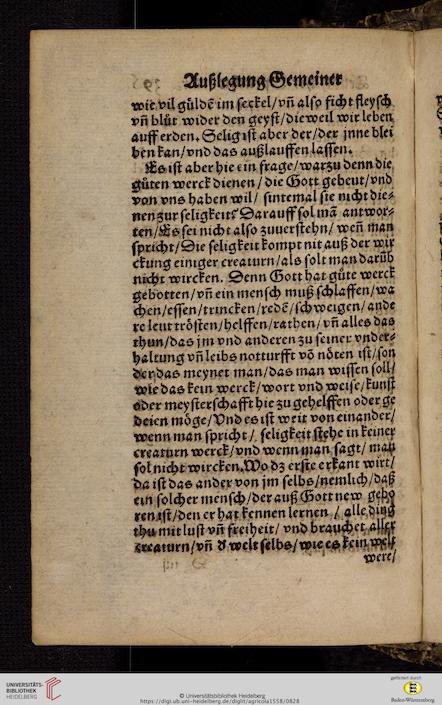 Außlegung Gemeiner
wie vil güldẽ im seckel/vñ also ficht fleysch
vñ blůt wider den geyst/dieweil wir leben
auff erden. Selig ist aber der/der jnne blei
ben kan/vnd das außlauffen lassen.
Es ist aber hie ein frage/warzu denn die
gůten werck dienen/die Gott gebeut/vnd
von vns haben wil/sintemal sie nicht die⸗
nen zur seligkeit? Darauff sol mã antwor⸗
ten/Es sei nicht also zuuerstehn/weñ man
spricht/Die seligkeit kompt nit auß der wir
ckung einiger creaturn/als solt man darüb
nicht wircken. Denn Gott hat gůte werck
gebotten/vñ ein mensch muß schlaffen/wa
chen/essen/trincken/redẽ/schweigen/ande
re leut trösten/helffen/rathen/vñ alles das
thun/das jm vnd anderen zu seiner vnder⸗
haltung vñ leibs notturfft võ nöten ist/son
der das meynet man/das man wissen soll/
wie das kein werck/wort vnd weise/kunst
oder meysterschafft hie zu gehelffen oder ge
deien möge/Vnd es ist weit von einander/
wenn man spricht/seligkeit stehe in keiner
creaturn werck/vnd wenn man sagt/man
sol nicht wircken. Wo dz erste erkant wirt/
da ist das ander von jm selbs/nemlich/daß
ein solcher mensch/der auß Gott new gebo
ren ist/den er hat kennen lernen/alle ding
thu mit lust vñ freiheit/vnd brauchet aller
creaturn/vñ d welt selbs/wie es kein welt
were/
UNIVERSITÄTS-
BIBLIOTHEK
HEIDELBERG
© Universitätsbibliothek Heidelberg
https://digi.ub.uni-heidelberg.de/diglit/agricola1558/0828
gefördert durch
Baden-Württemberg